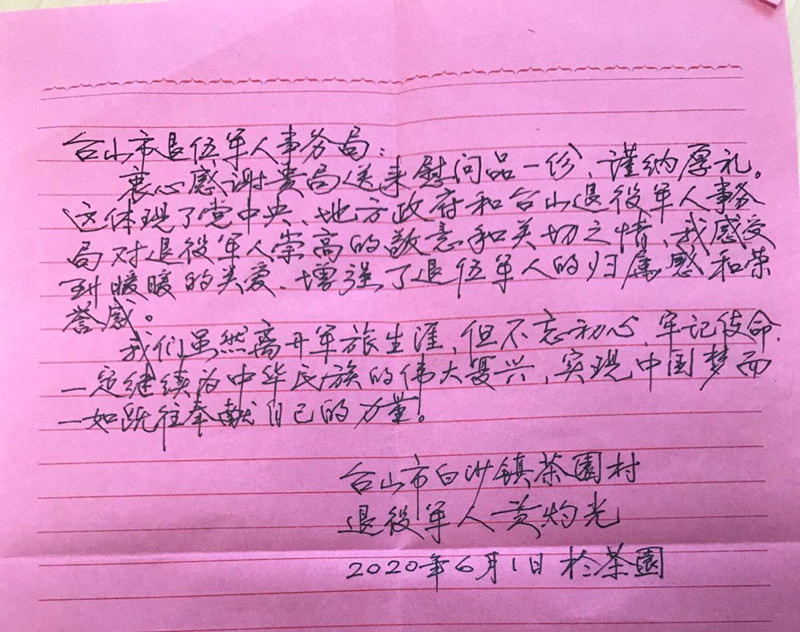 台山市退伍军人事务局：
衷心感谢贵局送来慰问品一份，谨纳厚礼。
这体现了党中央、地方政府和台山退役军人事务
局对退役军人崇高的敬意和关切之情，我感受
到暖暖的关爱、增强了退伍军人的归属感和荣
誉感。
我们虽然离开军旅生涯，但不忘初心，牢记使命，
一定继续为中华民族的伟大复兴，实现中国梦而
一如既往奉献自己的力量。
台山市白沙镇茶園村
退役军人黄灼光
2020年6月1日 於茶園